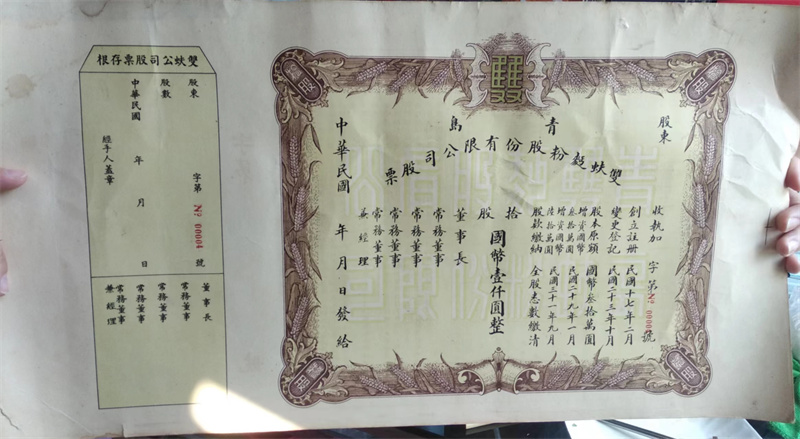 雙蚨公司股票存根
股東
股數
中華民國 年 月 日
經手人蓋章
字第 № 00004 號
董事長
常務董事
常務董事
常務董事
常務董事
兼經理
雙
發
青島
雙蚨麪粉股份有限公司股票
股東
收執加 字第 № 0000 號
創立註冊 民國十七年二月
變更登記 民國二十三年十月
股本原額 國幣叁拾萬圓
增資國幣叁拾萬圓 民國二十九年一月
增資國幣陸拾萬圓 民國三十一年九月
股款繳納 全股悉數繳清
拾股 國幣壹仟圓整
董事長
常務董事
常務董事
常務董事
常務董事
兼經理
中華民國 年 月 日發給